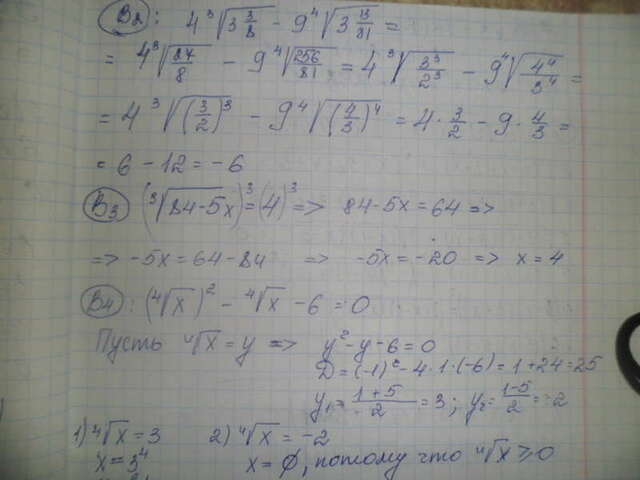 B2: 4 ∛(3 3/8) - 9 ∜(3 13/81) =
= 4 ∛(27/8) - 9 ∜(256/81) = 4 ∛(3³/2³) - 9 ∜(4⁴/3⁴) =
= 4 ∛((3/2)³) - 9 ∜((4/3)⁴) = 4 · 3/2 - 9 · 4/3 =
= 6 - 12 = -6
B3 (∛(84-5x))³ = (4)³ => 84-5x = 64 =>
=> -5x = 64 - 84 => -5x = -20 => x = 4
B4: (∜x)² - ∜x - 6 = 0
Пусть ∜x = y => y² - y - 6 = 0
D = (-1)² - 4·1·(-6) = 1 + 24 = 25
y₁ = (1+5)/2 = 3; y₂ = (1-5)/2 = -2
1) ∜x = 3 2) ∜x = -2
x = 3⁴ x = ∅, потому что ∜x ≥ 0